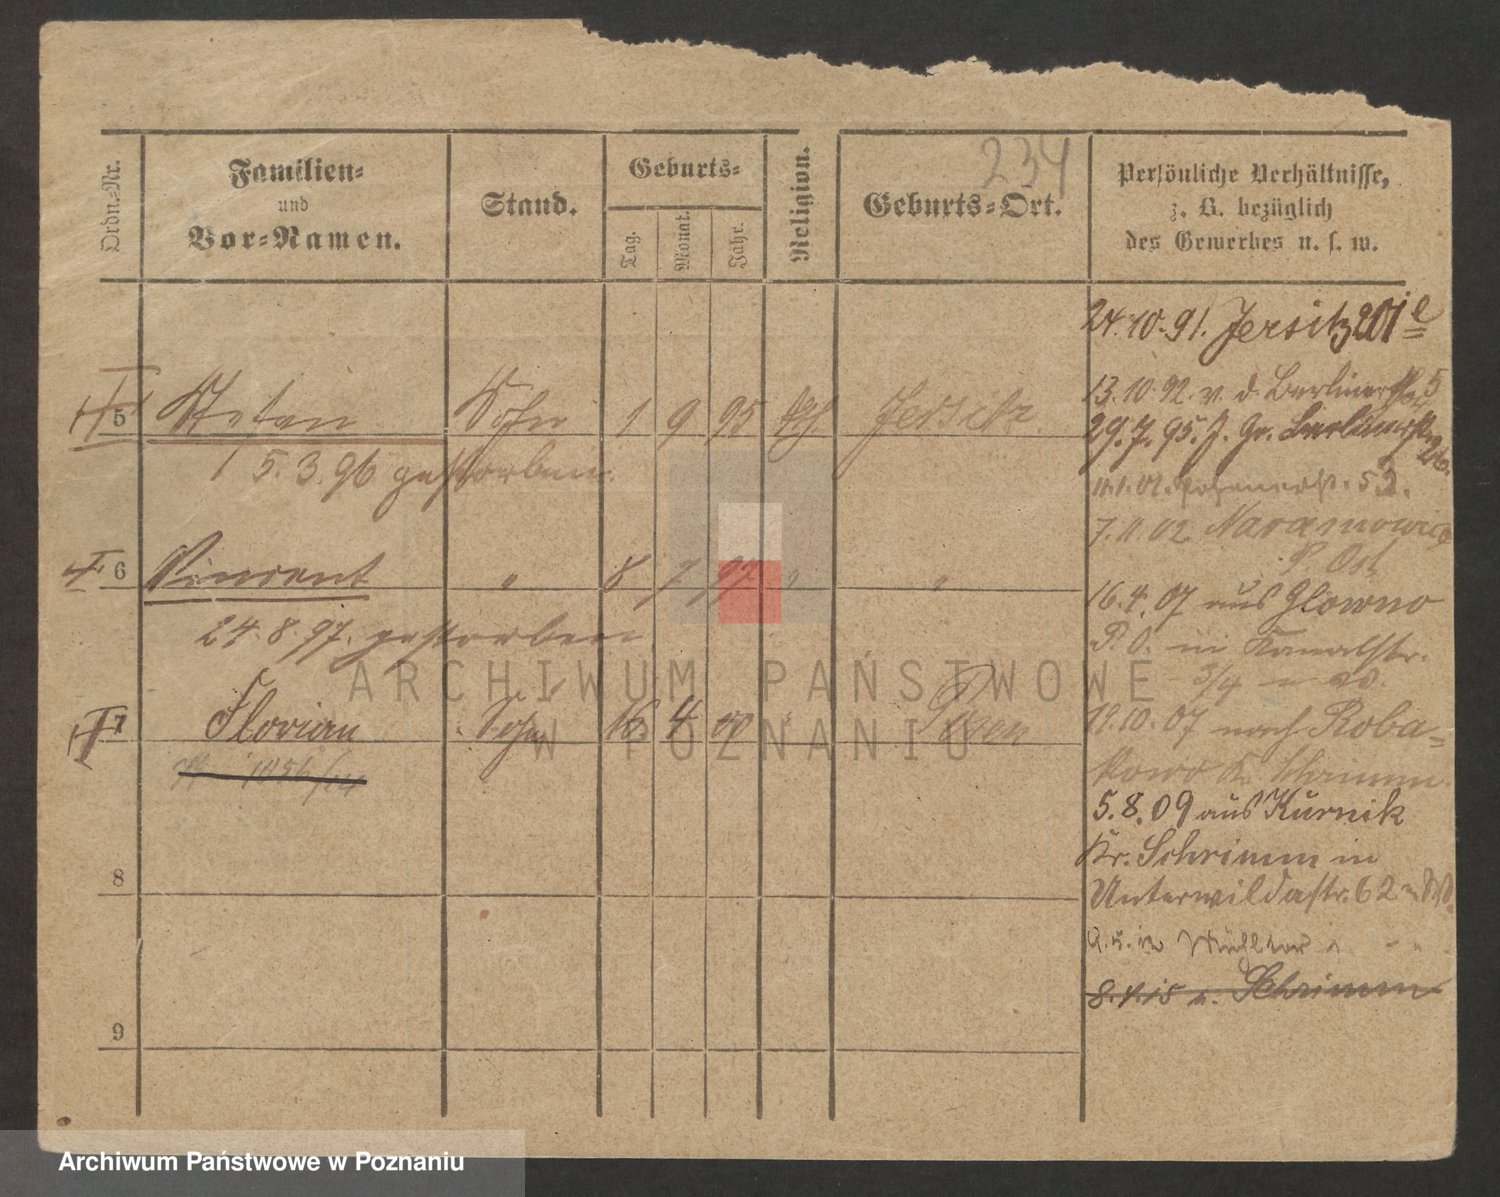 234
Ordn.-Nr.
Familien-
und
Vor-Namen.
Stand.
Geburts-
Tag.
Monat.
Jahr.
Religion.
Geburts-Ort.
Persönliche Verhältnisse,
z. B. bezüglich
des Gewerbes u. s. w.
24.10.91. Jersitz 201 e
13.10.92. v. d. Berlinerstr. 5
29.7.95. J. Gr. Berlinerstr.
5 Stefan Sohn 1 9 95 kth. Jersitz.
5.3.96 gestorben.
11.1.01. Posenerstr. 53.
7.11.02 Naramowice
P. Ost
6 Vincent " 8 7 97 " "
24.8.97. gestorben
16.4.07 aus Glowno
P. O. in Kanalstr.
3/4
7 Florian Sohn 16 4 00 " Posen
19.10.07 nach Roba-
kowo Kr. Schrimm.
5.8.09 aus Kurnik
Kr. Schrimm in
Unterwildastr. 62
8
9
8.4.15 n. Schrimm
ARCHIWUM PAŃSTWOWE
W POZNANIU
Archiwum Państwowe w Poznaniu